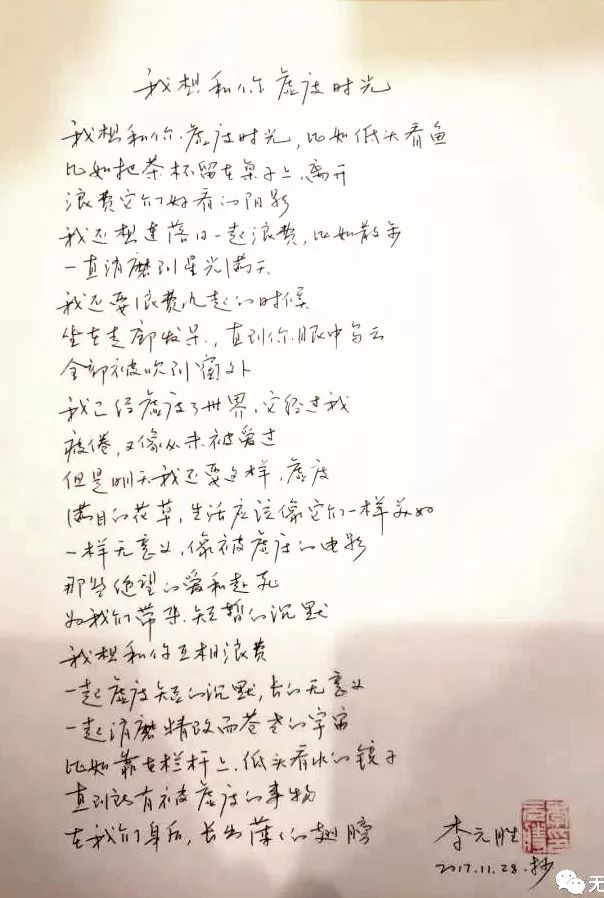 我想和你虚度时光
我想和你虚度时光,比如低头看鱼
比如把茶杯留在桌子上,离开
浪费它们好看的阴影
我还想连落日一起浪费,比如散步
一直消磨到星光满天
我还要浪费风起的时候
坐在走廊发呆,直到你眼中乌云
全部被吹到窗外
我已经虚度了世界,它经过我
疲倦,又像从未被爱过
但是明天我还要这样,虚度
满目的花草,生活应该像它们一样美好
一样无意义,像被虚度的电影
那些绝望的爱和赴死
为我们带来短暂的沉默
我想和你互相浪费
一起虚度短的沉默,长的无意义
一起消磨精致而苍老的宇宙
比如靠在栏杆上,低头看水的镜子
直到所有被虚度的事物
在我们身后,长出薄薄的翅膀
李元胜
2017.11.28.抄
无